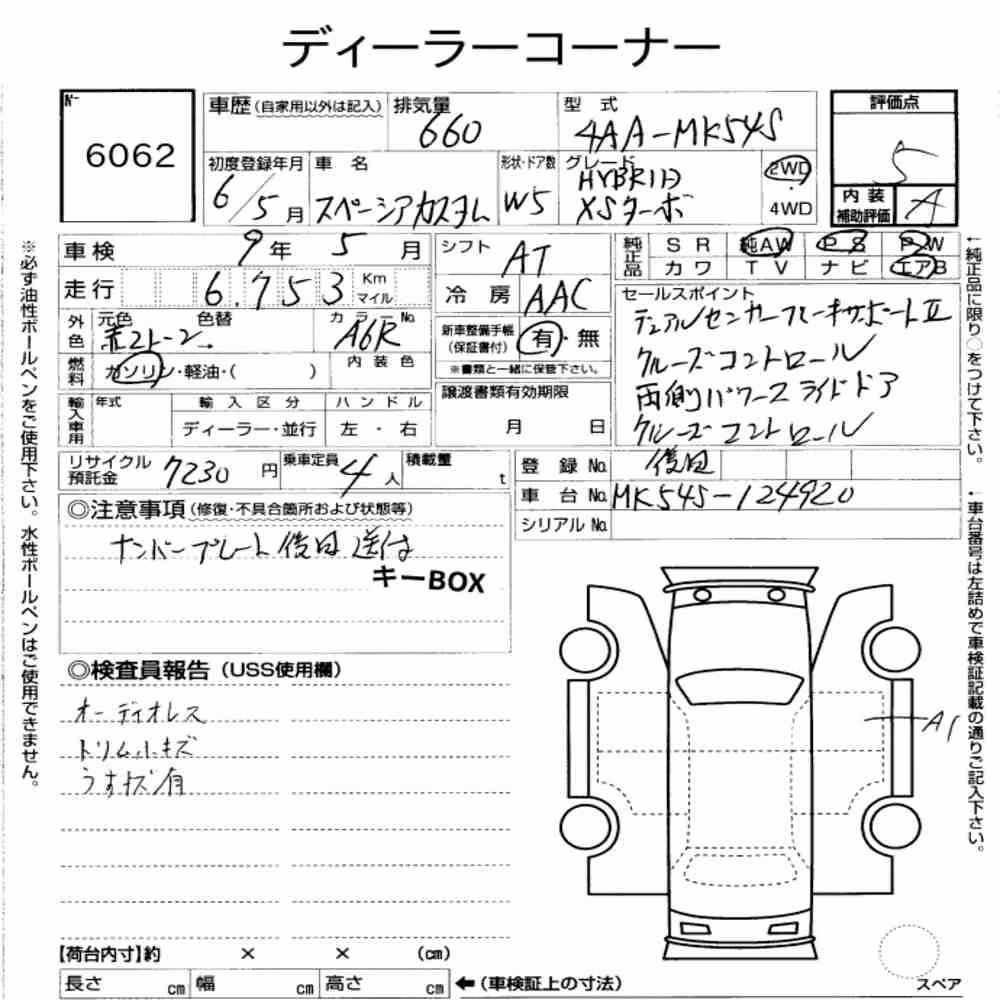 ディーラーコーナー
6062
車歴(自家用以外は記入)
排気量
660
型 式
4AA-MK54S
評価点
5
内装補助評価
A
初度登録年月
6/5月
車 名
スペーシアカスタム
形状・ドア数
W5
グレード
HYBRID
XSターボ
2WD
4WD
車検 9年 5月
シフト
AT
純正品
SR 純AW PS PW
カワ TV ナビ エアB
走行 6,753 Km マイル
冷房
AAC
セールスポイント
デュアルセンサーブレーキサポートⅡ
クルーズコントロール
両側パワースライドドア
クルーズコントロール
外色
元色
赤2トーン
色替
カラーNo.
A6R
新車整備手帳(保証書付)
有・無
※書類と一緒に保管下さい。
燃料
ガソリン・軽油・( )
内装色
譲渡書類有効期限
月 日
輸入車用
年式
輸入区分
ディーラー・並行
ハンドル
左・右
リサイクル預託金
7230円
乗車定員
4人
積載量
t
登録No.
後日
車台No.
MK54S-124920
シリアルNo.
◎注意事項(修復・不具合箇所および状態等)
ナンバープレート後日送付
キーBOX
◎検査員報告(USS使用欄)
オーディオレス
トリム小キズ
うすキズ有
A1
【荷台内寸】約 × × (cm)
長さ cm 幅 cm 高さ cm
←(車検証上の寸法)
スペア
※必ず油性ボールペンをご使用下さい。水性ボールペンはご使用できません。
←純正品に限り○をつけて下さい。
←車台番号は左詰めで車検証記載の通りご記入下さい。